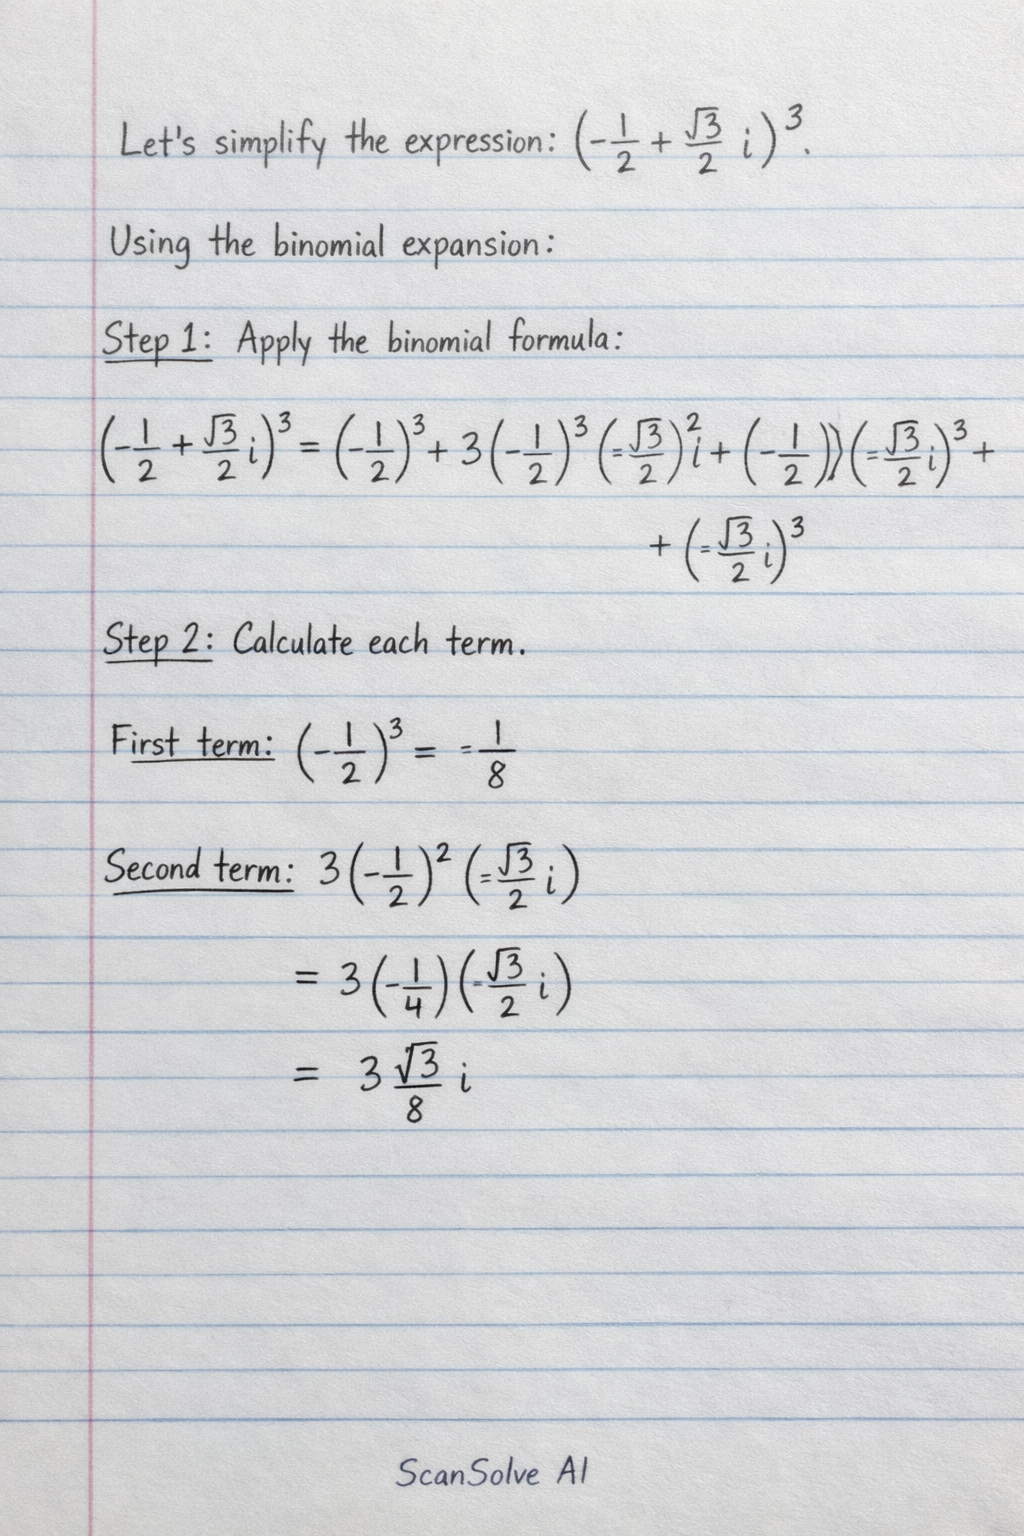 Let's simplify the expression: (-1/2 + √3/2 i)³.
Using the binomial expansion:
Step 1: Apply the binomial formula:
(-1/2 + √3/2 i)³ = (-1/2)³ + 3(-1/2)³ (=√3/2)² i + (-1/2))(=√3/2 i)³ +
+ (=√3/2 i)³
Step 2: Calculate each term.
First term: (-1/2)³ = =1/8
Second term: 3(-1/2)² (=√3/2 i)
= 3(-1/4)(=√3/2 i)
= 3 √3/8 i
ScanSolve AI